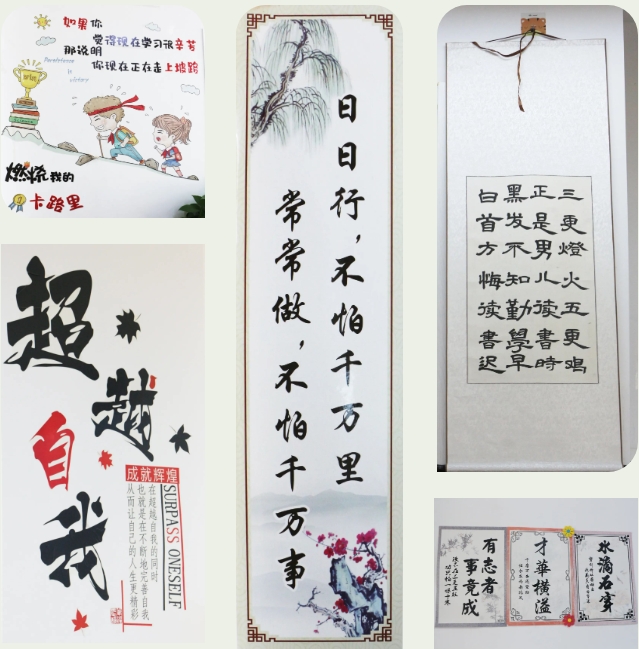 如果你
觉得现在学习很辛苦
那说明
你现在正在走上坡路
Persistence
is
victory
燃烧我的
卡路里
超越
自我
成就辉煌
SURPASS ONESELF
在超越自我的同时
也就是在不断地完善自我
从而让自己的人生更精彩
日日行，不怕千万里
常常做，不怕千万事
三更燈火五更鸡
正是男儿读書時
黑发不知勤學早
白首方悔读書迟
有志者
事竟成
才華横溢
水滴石穿